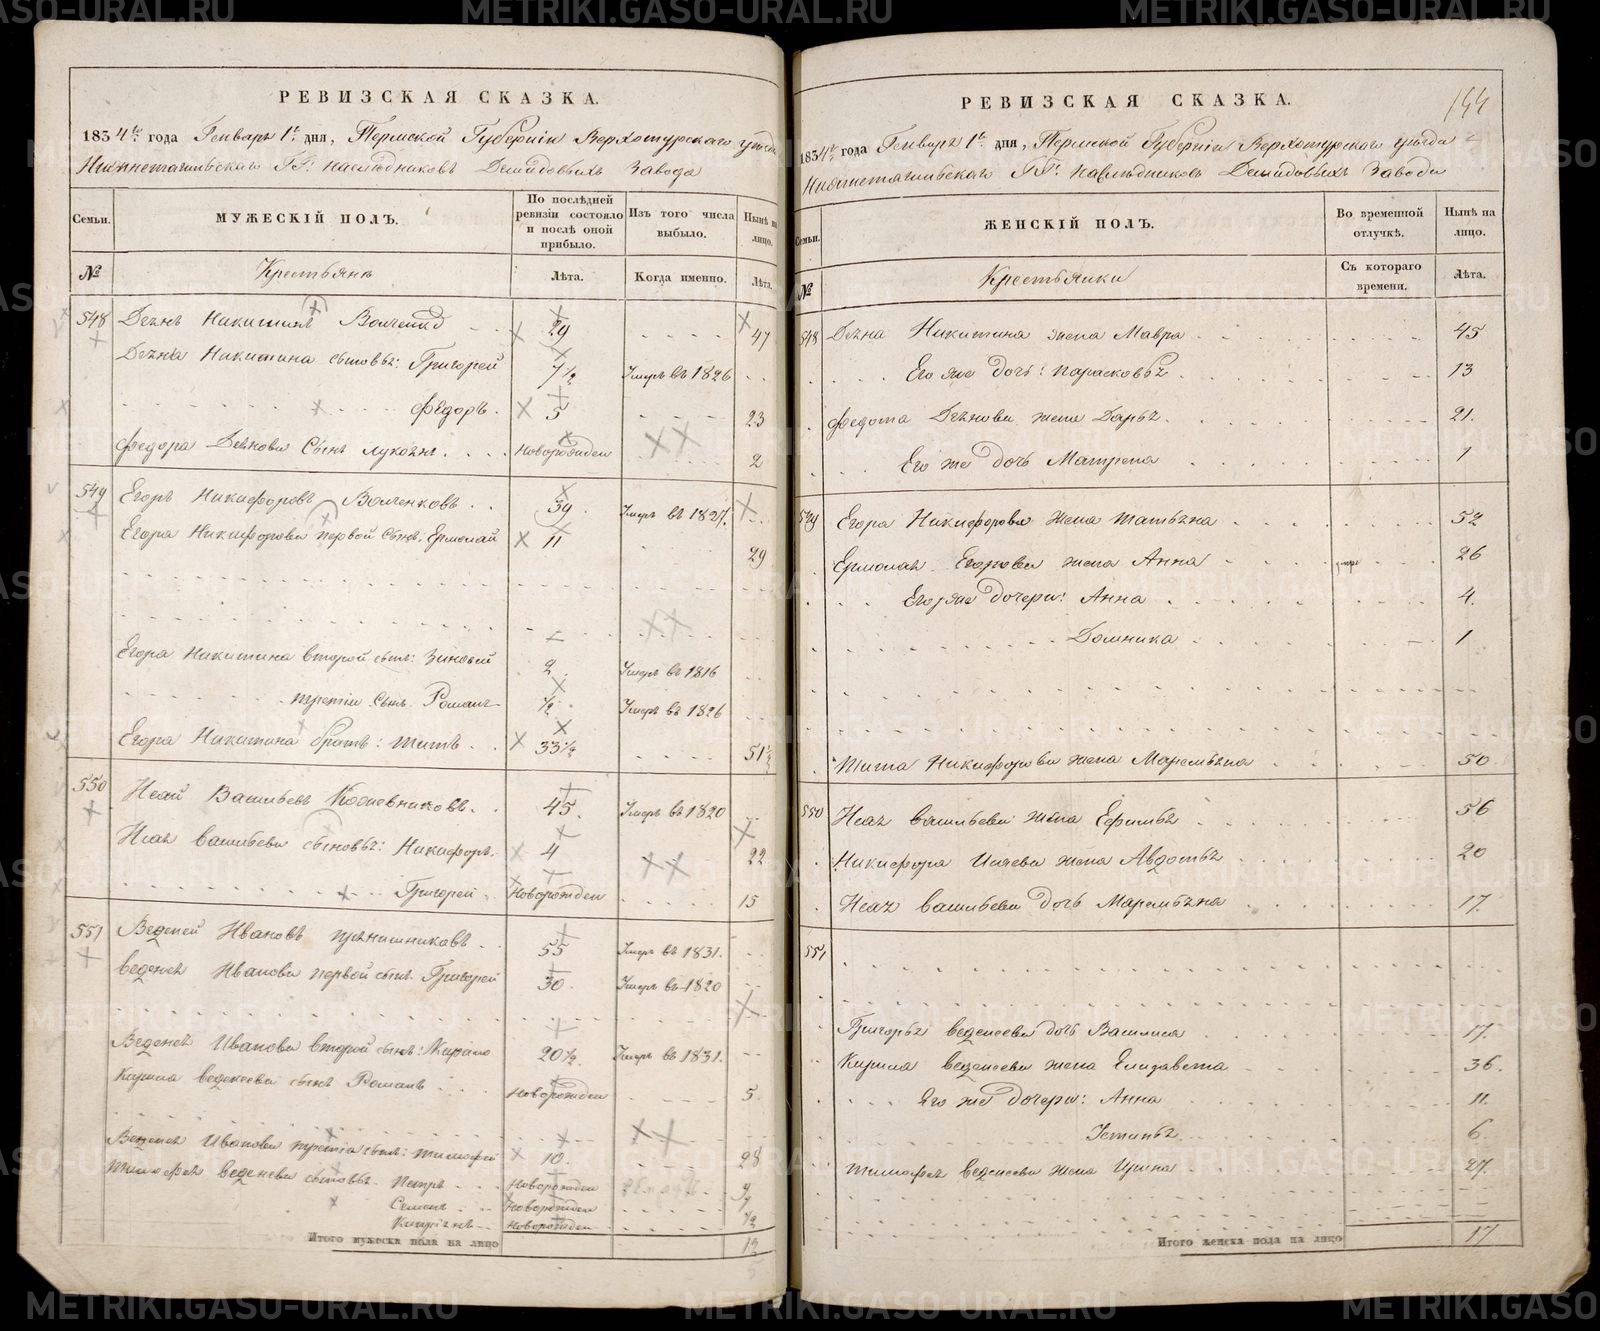 РЕВИЗСКАЯ СКАЗКА.
1834го года Генваря 1го дня, Пермской Губерніи Верхотурскаго уезда
Нижнетагильскаго ГГ: наследниковъ Демидовыхъ Завода
Семьи. МУЖЕСКІЙ ПОЛЪ. По послѣдней ревизіи состояло и послѣ оной прибыло. Изъ того числа выбыло. Нынѣ на лицо.
№ Крестьянъ Лѣта. Когда именно. Лѣта.
548 Никитинъ 29 47
Никитина сыновья: Григорей 7½ Умеръ въ 1826
Федоръ. 5 23
Федора сынъ Новорожден 2
549 Егоръ Никифоровъ Волченковъ 39 Умеръ въ 1827.
Егора Никифорова первой сынъ, Ермолай 11 29
Егора Никитина второй сынъ: Зиновей 2 Умеръ въ 1816
третій сынъ Романъ ½ Умеръ въ 1826
Егора Никитина братъ: Титъ 33½ 51½
550 Исай Васильевъ Кожевниковъ. 45. Умеръ въ 1820
Исая Васильева сыновья: Никифоръ. 4 22
Григорей Новорожден 15
551 Веденей Ивановъ 55 Умеръ въ 1831.
Веденея Иванова первой сынъ Григорей 30. Умеръ въ 1820
Веденея Иванова второй сынъ: Кирило 20½ Умеръ въ 1831.
Кирила Веденеева сынъ Романъ Новорожден 5.
Веденея Иванова третій сынъ: Тимофей 10. 28
Тимофея Веденеева сыновья: Петръ Новорожден 9
Семенъ Новорожден
Новорожден ½
Итого мужеска пола на лицо 13
РЕВИЗСКАЯ СКАЗКА. 144
1834го года Генваря 1го дня, Пермской Губерніи Верхотурскаго уезда
Нижнетагильскаго ГГ: наследниковъ Демидовыхъ Завода
Семьи. ЖЕНСКІЙ ПОЛЪ. Во временной отлучкѣ. Нынѣ на лицо.
№ Крестьянки Съ котораго времени. Лѣта.
548 Никитина жена Мавра 45
Его же дочь: Парасковья 13
жена Дарья. 21.
Его же дочь Матрена 1
549 Егора Никифорова жена Татьяна 52
Ермолая Егорова жена Анна 26
Его же дочери: Анна 4.
Домника 1
Тита Никифорова жена Маремьяна 50.
550 Исая Васильева жена Ефимья 56
Никифора Исаева жена Авдотья 20
Исая Васильева дочь Маремьяна 17.
551
Григорья Веденеева дочь Василиса 17.
Кирила Веденеева жена Елизавета 36.
Его же дочери: Анна 11.
Устинья 6.
Тимофея Веденеева жена Ирина 27.
Итого женска пола на лицо 17
METRIKI.GASO-URAL.RU